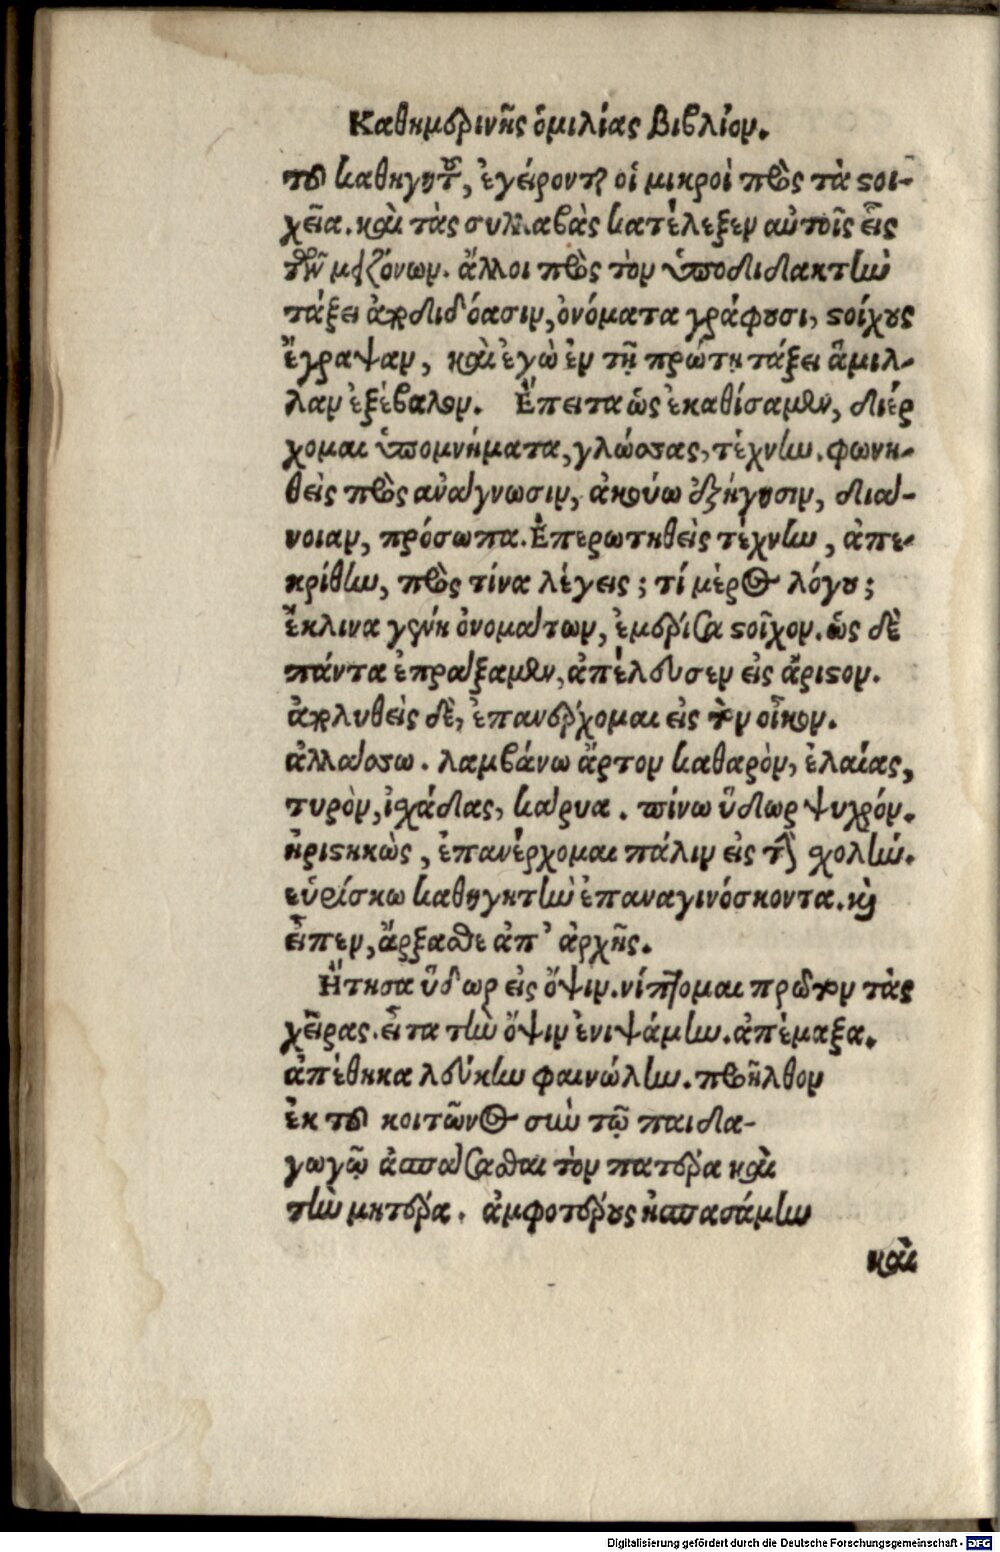 Καθημερινῆς ὁμιλίας βιβλίον.
τοῦ καθηγητοῦ, ἐγείρονται οἱ μικροὶ πρὸς τὰ στοι-
χεῖα. καὶ τὰς συλλαβὰς κατέλεξεν αὐτοῖς εἷς
τῶν μειζόνων. ἄλλοι πρὸς τὸν ὑποδιδακτὴν
τάξει ἀποδιδόασιν, ὀνόματα γράφουσι, στοίχους
ἔγραψαν, καὶ ἐγὼ ἐν τῇ πρώτῃ τάξει ἅμιλ-
λαν ἐξέβαλον. Ἔπειτα ὡς ἐκαθίσαμεν, διέρ
χομαι ὑπομνήματα, γλώσσας, τέχνην. φωνη-
θεὶς πρὸς ἀνάγνωσιν, ἀκούω ἐξήγησιν, διά-
νοιαν, πρόσωπα. Ἐπερωτηθεὶς τέχνην, ἀπε-
κρίθην, πρὸς τίνα λέγεις; τί μέρος λόγου;
ἔκλινα γένη ὀνομάτων, ἐμέρισα στοῖχον. ὡς δὲ
πάντα ἐπράξαμεν, ἀπέλυσεν εἰς ἄριστον.
ἀπολυθεὶς δὲ, ἐπανέρχομαι εἰς τὸν οἶκον.
ἀλλάσσω. λαμβάνω ἄρτον καθαρὸν, ἐλαίας,
τυρὸν, ἰσχάδας, κάρυα. πίνω ὕδωρ ψυχρόν.
ἠριστηκὼς, ἐπανέρχομαι πάλιν εἰς τὴν σχολήν.
εὑρίσκω καθηγητὴν ἐπαναγινόσκοντα. καὶ
εἶπεν, ἄρξασθε ἀπ' ἀρχῆς.
Ἤτησα ὕδωρ εἰς ὄψιν. νίπτομαι πρῶτον τὰς
χεῖρας. εἶτα τὴν ὄψιν ἐνιψάμην. ἀπέμαξα.
ἀπέθηκα λεύκην φαινώλην. προῆλθον
ἐκ τοῦ κοιτῶνος σὺν τῷ παιδα-
γωγῷ ἀσπάσασθαι τὸν πατέρα καὶ
τὴν μητέρα. ἀμφοτέρους ἠσπασάμην
καὶ
Digitalisierung gefördert durch die Deutsche Forschungsgemeinschaft - DFG